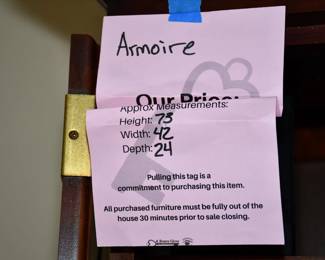 Armoire
Our Price:
Approx Measurements:
Height: 73
Width: 42
Depth: 24
Pulling this tag is a
commitment to purchasing this item.
All purchased furniture must be fully out of the
house 30 minutes prior to sale closing.